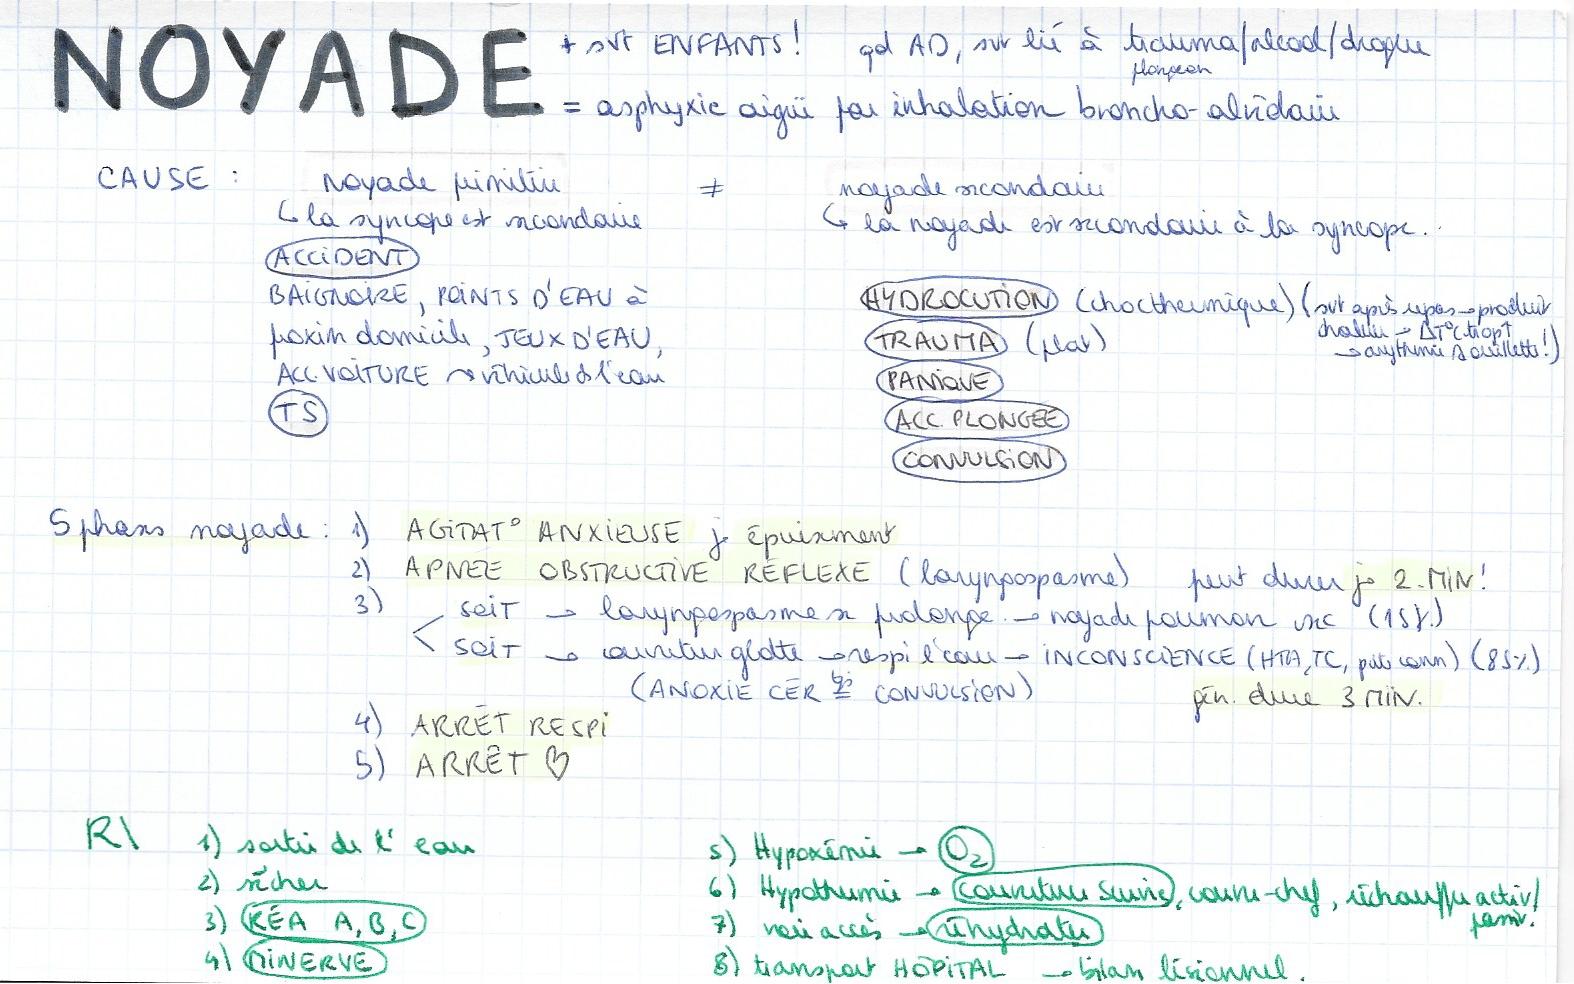 NOYADE + svt ENFANTS! qd AD, svt lié à trauma/alcool/drogue
plongeon
= asphyxie aigüe par inhalation broncho-alvéolaire
CAUSE : Noyade primitive ≠ noyade secondaire
↳ la syncope est secondaire ↳ la noyade est secondaire à la syncope.
ACCIDENT
BAIGNOIRE, POINTS D'EAU à
proxin domicile, JEUX D'EAU,
ACC. VOITURE → véhicule ds l'eau
TS
HYDROCUTION (choc thermique) (svt après repas → produit
chaleur → ΔT°C trop↑
→ arythmie
TRAUMA (plat)
PANIQUE
ACC. PLONGEE
CONVULSION
5 phases noyade : 1) AGITAT° ANXIEUSE jq épuisement
2) APNEE OBSTRUCTIVE RÉFLEXE (laryngospasme) peut durer jq 2 MIN!
3) SOIT → laryngospasme se prolonge → noyade poumon sec (15%)
SOIT → ouverture glotte → respi l'eau → INCONSCIENCE (HTA, TC, perte conn) (85%)
(ANOXIE CÉR CONVULSION) gén. dure 3 MIN.
4) ARRÊT RESPI
5) ARRÊT ♡
R\ 1) sortie de l'eau
2) sécher
3) RÉA A, B, C
4) MINERVE
5) Hypoxémie → O₂
6) Hypothermie → couverture survie, couvre-chef, réchauffe activ/
passiv.
7) voie accès → réhydrater
8) transport HOPITAL → bilan lésionnel.